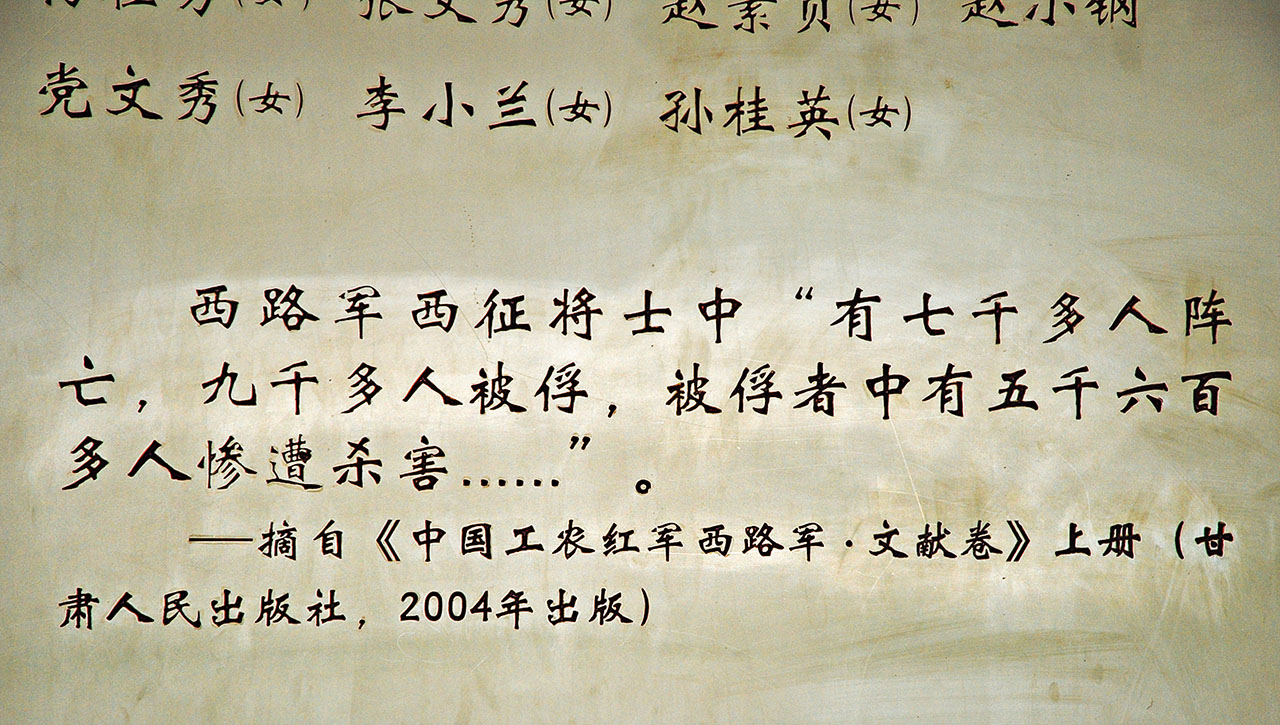 张文秀(女) 赵素贞(女) 赵小钢
党文秀(女) 李小兰(女) 孙桂英(女)
西路军西征将士中“有七千多人阵
亡，九千多人被俘，被俘者中有五千六百
多人惨遭杀害……”。
——摘自《中国工农红军西路军·文献卷》上册（甘
肃人民出版社，2004年出版）